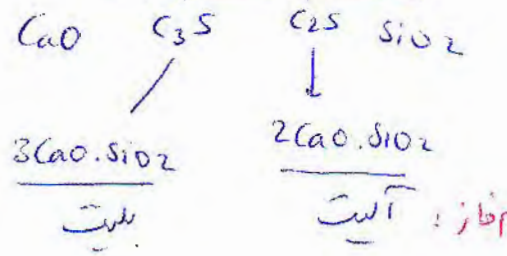 CaO C3S C2S SiO2
3CaO.SiO2 2CaO.SiO2
فاز: آلیت بلیت